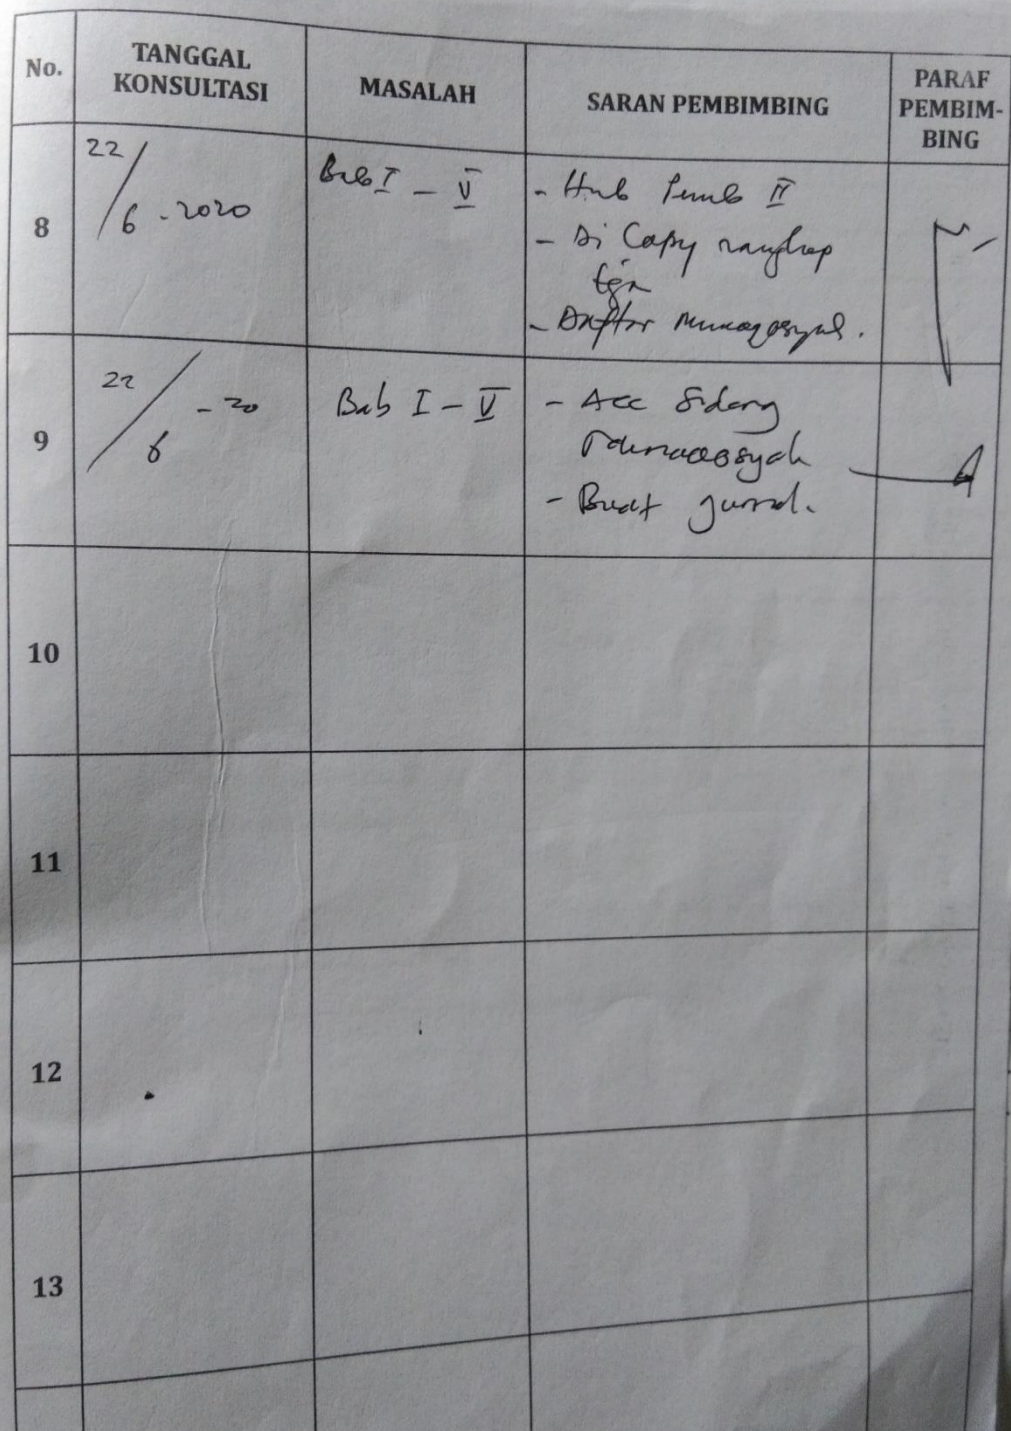 No.
TANGGAL
KONSULTASI
MASALAH
SARAN PEMBIMBING
PARAF
PEMBIM-
BING
8
22/6-2020
Bab I - V
- Hub Pemb II
- Di Copy rangkap
- Daftar munaqosyah.
9
22/6-20
Bab I - V
- Acc Sidang
- Buat jurnal.
10
11
12
13